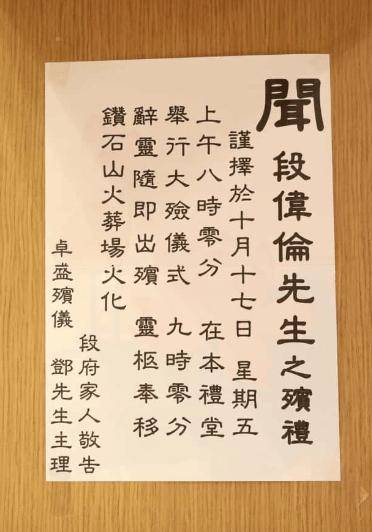 聞 段偉倫先生之殯禮
謹擇於十月十七日 星期五
上午八時零分 在本禮堂
舉行大殮儀式 九時零分
辭靈隨即出殯 靈柩奉移
鑽石山火葬場火化
段府家人敬告
卓盛殯儀 鄧先生主理